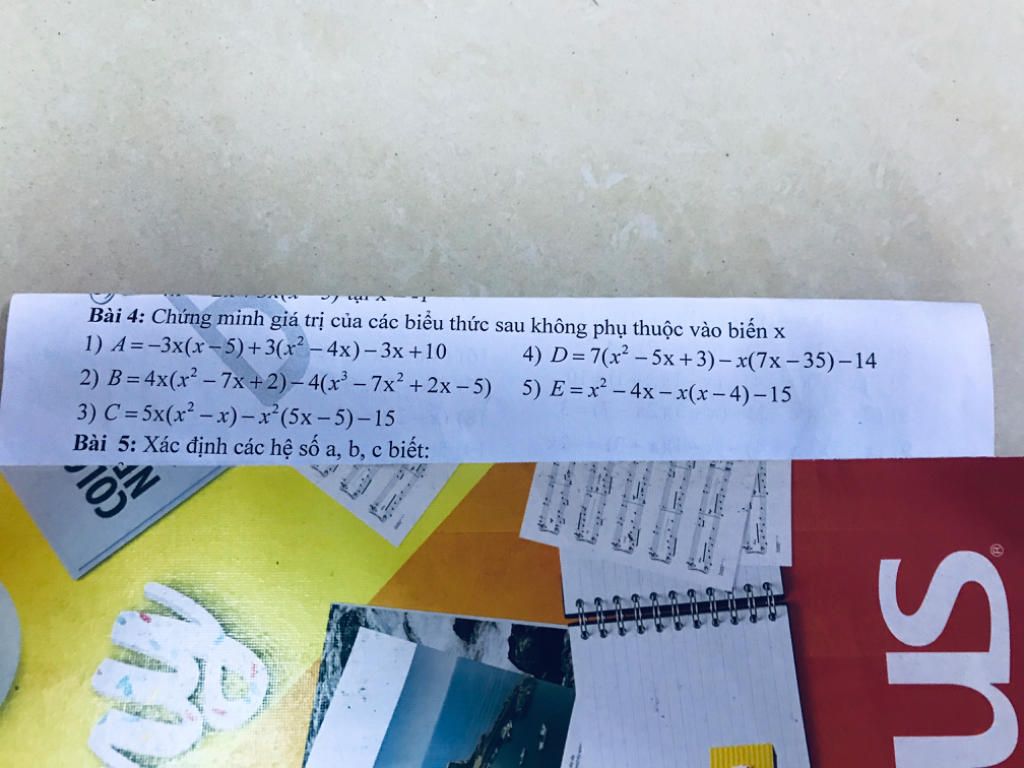 Bài 4: Chứng minh giá trị của các biểu thức sau không phụ thuộc vào biến x
1) A = −3x(x − 5) + 3(x² − 4x) − 3x + 10
4) D = 7(x² − 5x + 3) − x(7x − 35) − 14
2) B = 4x(x² − 7x + 2) − 4(x³ − 7x² + 2x − 5)
5) E = x² − 4x − x(x − 4) − 15
3) C = 5x(x² − x) − x²(5x − 5) − 15
Bài 5: Xác định các hệ số a, b, c biết:
us®